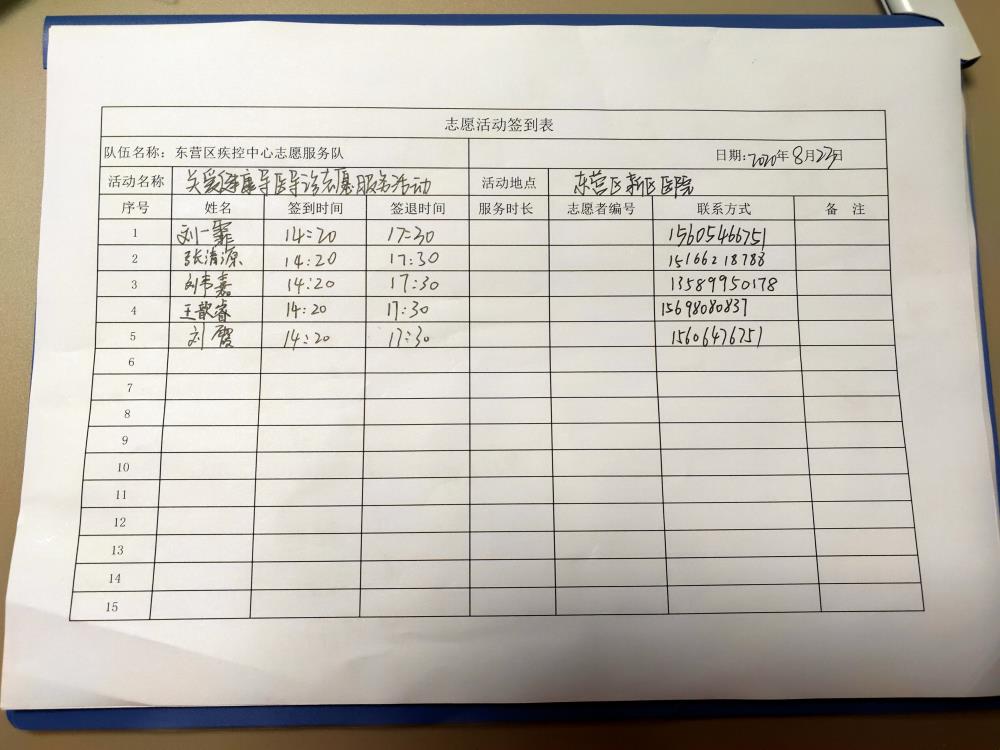 志愿活动签到表
队伍名称：东营区疾控中心志愿服务队 日期:2020年8月23日
活动名称 关爱健康导医导诊志愿服务活动 活动地点 东营区新区医院
序号 姓名 签到时间 签退时间 服务时长 志愿者编号 联系方式 备 注
1 刘一霏 14:20 17:30 15605466751
2 张清源 14:20 17:30 15166218788
3 刘韦嘉 14:20 17:30 13589950178
4 王歆睿 14:20 17:30 15698080837
5 刘霞 14:20 17:30 15606476751
6
7
8
9
10
11
12
13
14
15